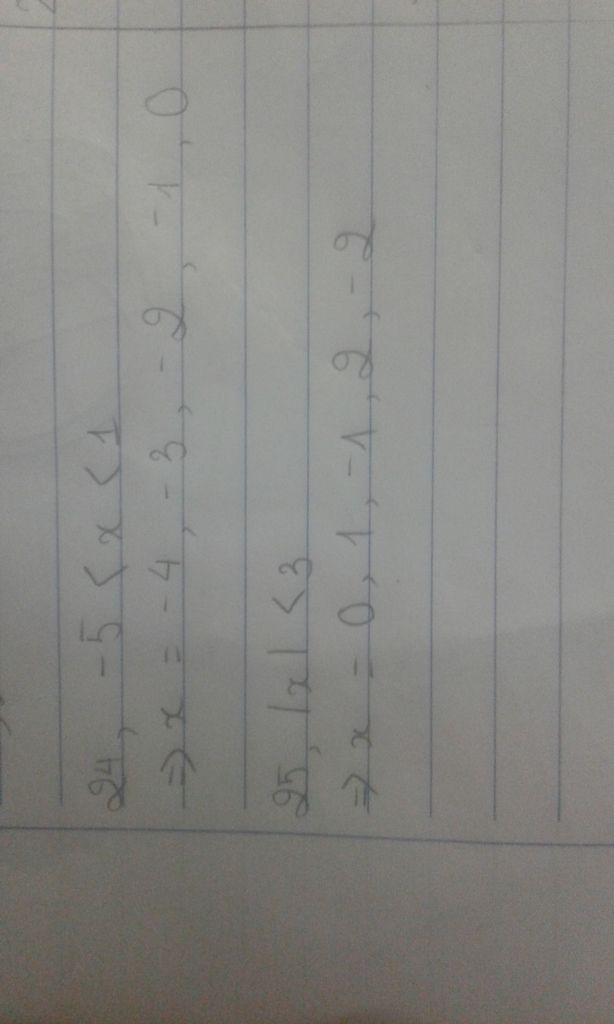 24, -5 < x < 1
=> x = -4, -3, -2, -1, 0
25, |x| < 3
=> x = 0, 1, -1, 2, -2